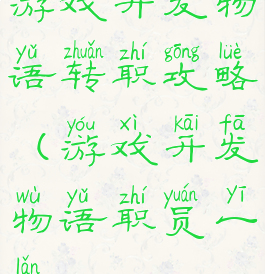 游戏开发物
yǔ zhuǎn zhí gōng lüè
语转职攻略
yóu xì kāi fā
（游戏开发
wù yǔ zhí yuán yī
物语职员一
lǎn